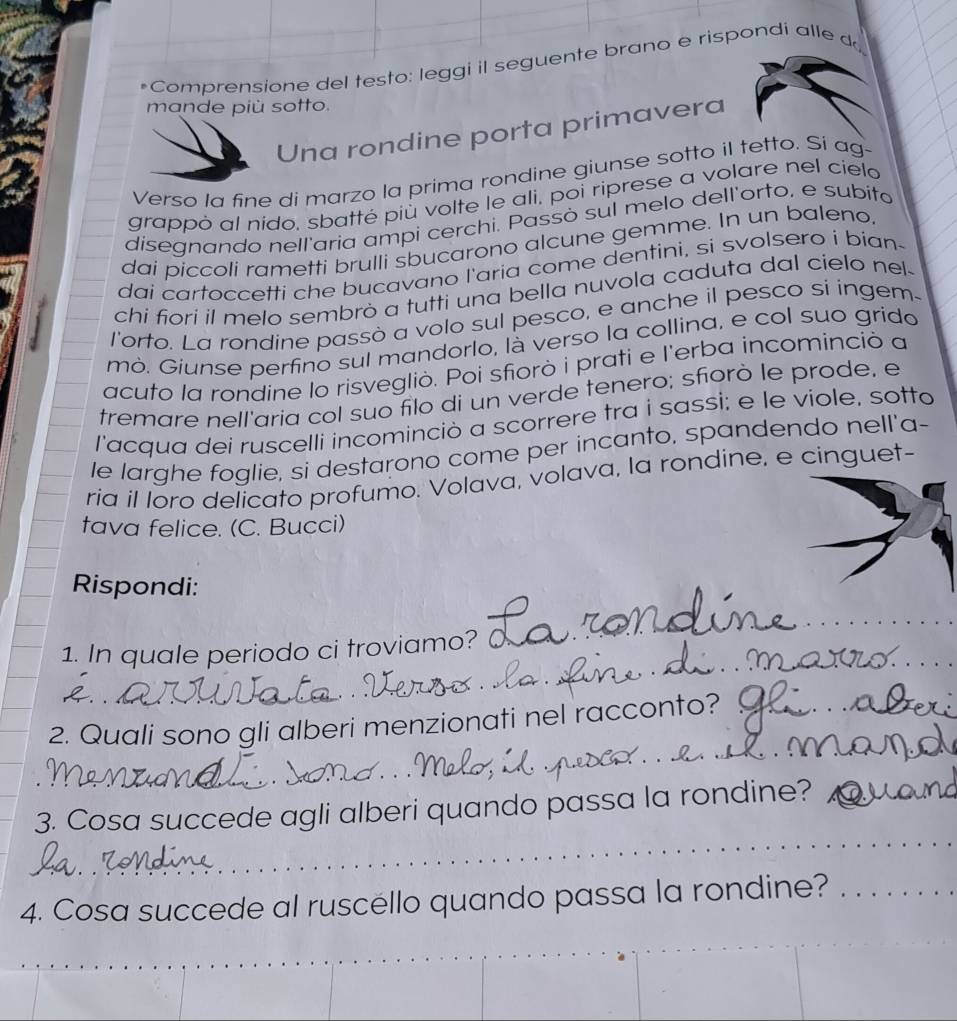 •Comprensione del testo: leggi il seguente brano e rispondi alle do
mande più sotto.
Una rondine porta primavera
Verso la fine di marzo la prima rondine giunse sotto il tetto. Si ag-
grappò al nido, sbatté più volte le ali, poi riprese a volare nel cielo
disegnando nell'aria ampi cerchi. Passò sul melo dell'orto, e subito
dai piccoli rametti brulli sbucarono alcune gemme. In un baleno,
dai cartoccetti che bucavano l'aria come dentini, si svolsero i bian-
chi fiori il melo sembrò a tutti una bella nuvola caduta dal cielo nel-
l'orto. La rondine passò a volo sul pesco, e anche il pesco si ingem-
mò. Giunse perfino sul mandorlo, là verso la collina, e col suo grido
acuto la rondine lo risvegliò. Poi sfiorò i prati e l'erba incominciò a
tremare nell'aria col suo filo di un verde tenero; sfiorò le prode, e
l'acqua dei ruscelli incominciò a scorrere tra i sassi; e le viole, sotto
le larghe foglie, si destarono come per incanto, spandendo nell'a-
ria il loro delicato profumo. Volava, volava, la rondine, e cinguet-
tava felice. (C. Bucci)
Rispondi:
1. In quale periodo ci troviamo? La rondine
è arrivata verso la fine di marzo.
2. Quali sono gli alberi menzionati nel racconto? gli alberi
sono melo, il pesco e il mand
3. Cosa succede agli alberi quando passa la rondine? quand
la rondine
4. Cosa succede al ruscello quando passa la rondine?